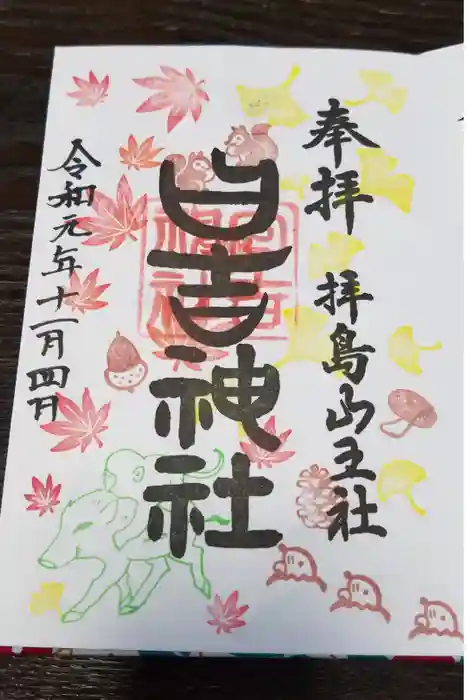 奉拝
拝島山王社
日吉神社
令和元年十一月四日